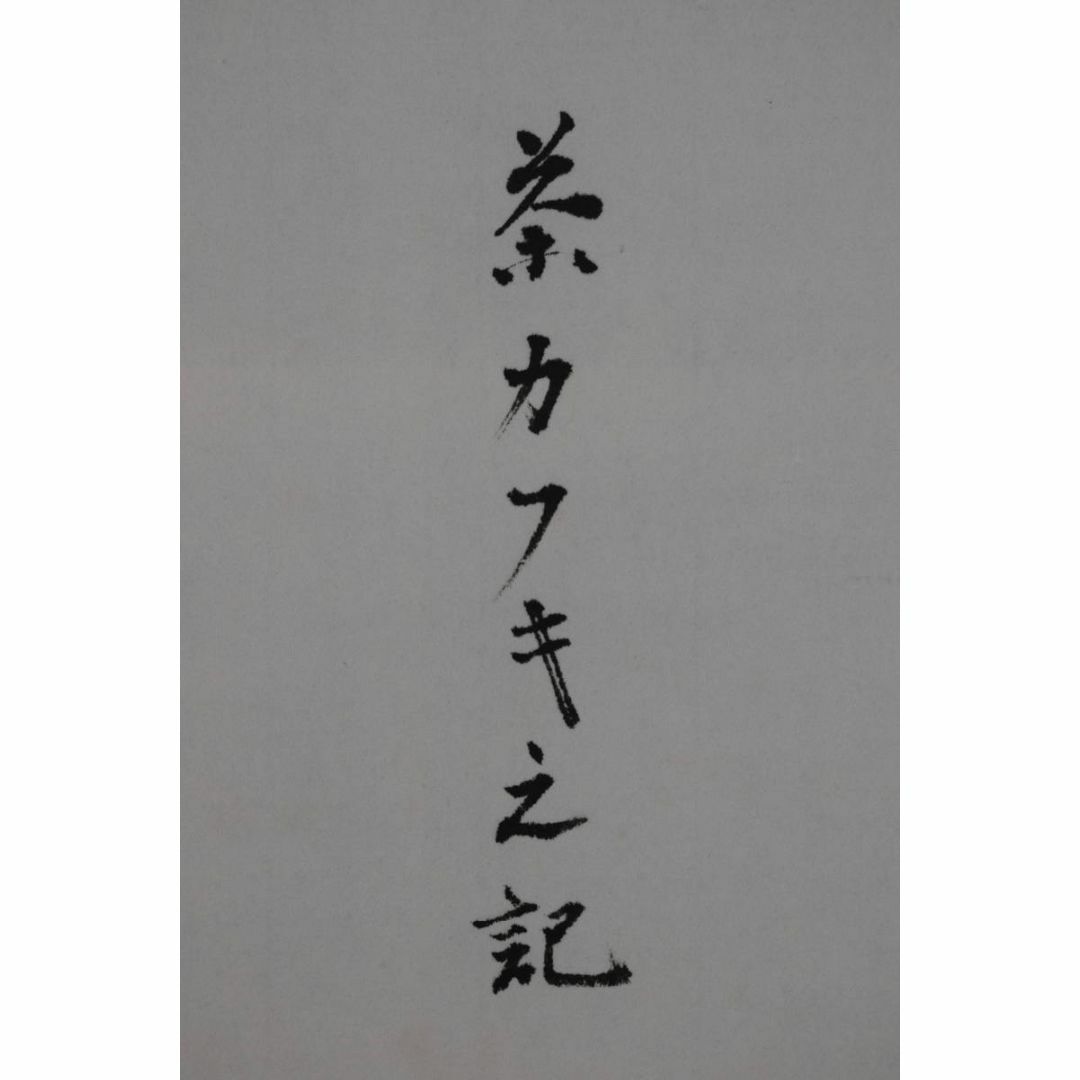 茶カフキ之記